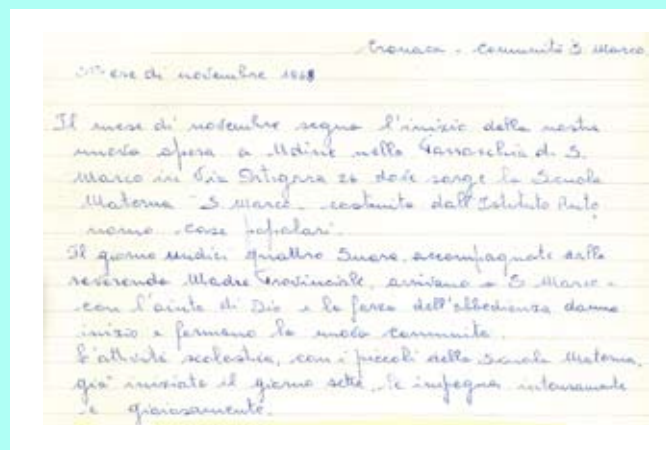 Cronaca - Comunità S. Marco
Mese di novembre 1968
Il mese di novembre segna l'inizio della nostra
nuova opera a Udine nella Parrocchia di S.
Marco in Via Ortigara 20 dove sorge la Scuola
Materna "S. Marco" costruita dall'Istituto Auto
nomo case popolari.
Il giorno undici quattro Suore, accompagnate dalla
reverenda Madre Provinciale, arrivano a S. Marco -
con l'aiuto di Dio e la forza dell'obbedienza danno
inizio e formano la nuova comunità.
L'attività scolastica, con i piccoli della Scuola Materna,
già iniziata il giorno sette, le impegna intensamente
e gioiosamente.